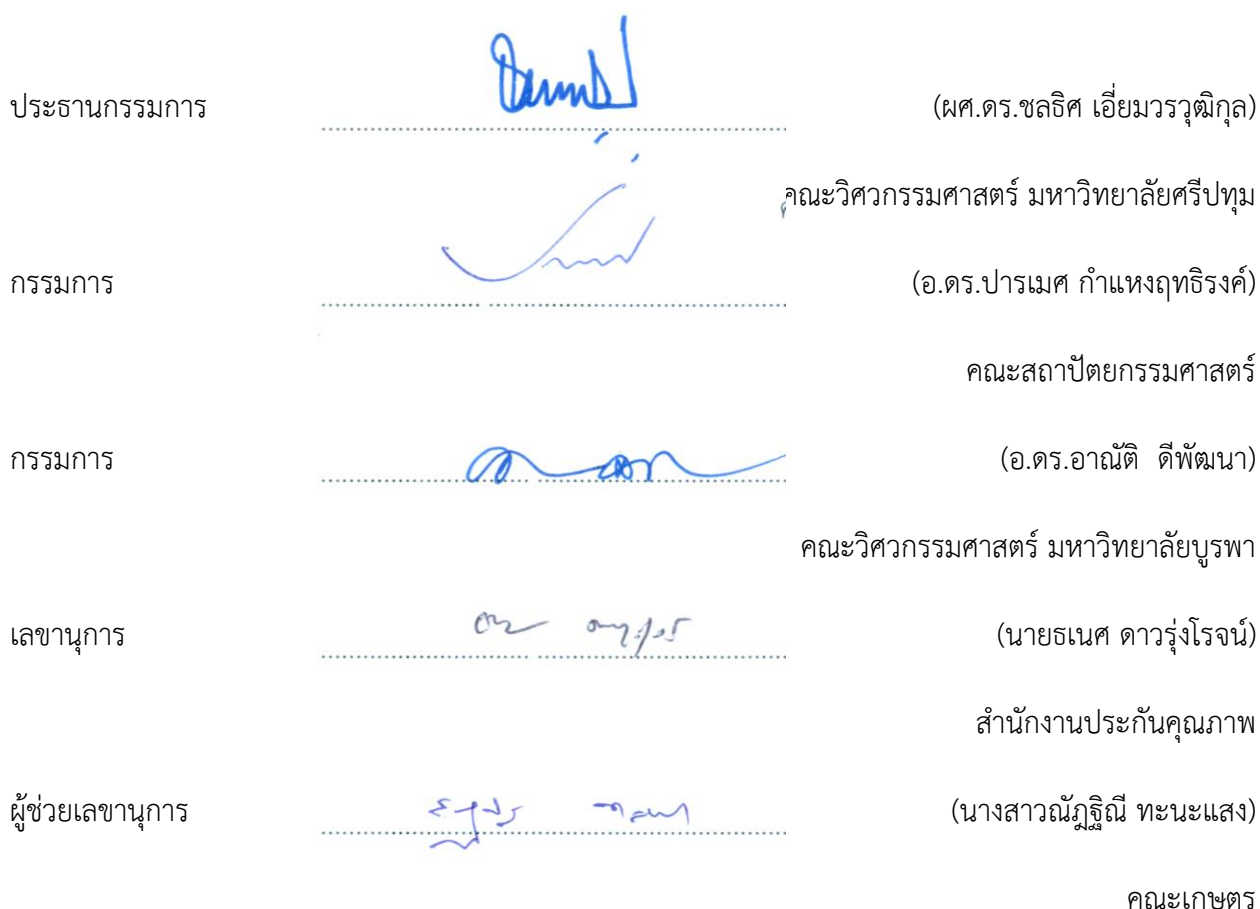 ประธานกรรมการ (ผศ.ดร.ชลธิศ เอี่ยมวรวุฒิกุล)
คณะวิศวกรรมศาสตร์ มหาวิทยาลัยศรีปทุม
กรรมการ (อ.ดร.ปารเมศ กำแหงฤทธิรงค์)
คณะสถาปัตยกรรมศาสตร์
กรรมการ (อ.ดร.อาณัติ ดีพัฒนา)
คณะวิศวกรรมศาสตร์ มหาวิทยาลัยบูรพา
เลขานุการ (นายธเนศ ดาวรุ่งโรจน์)
สำนักงานประกันคุณภาพ
ผู้ช่วยเลขานุการ (นางสาวณัฎฐิณี ทะนะแสง)
คณะเกษตร